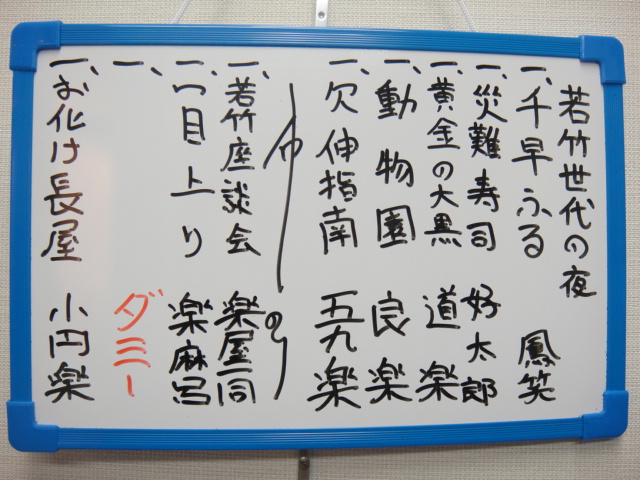 若竹世代の夜
一、千早ふる 鳳笑
一、災難寿司 好太郎
一、黄金の大黒 道楽
一、動物園 良楽
一、欠伸指南 五九楽
仲入り
一、若竹座談会 楽屋一同
一、一目上り 楽麻呂
一、 ダミー
一、お化け長屋 小円楽